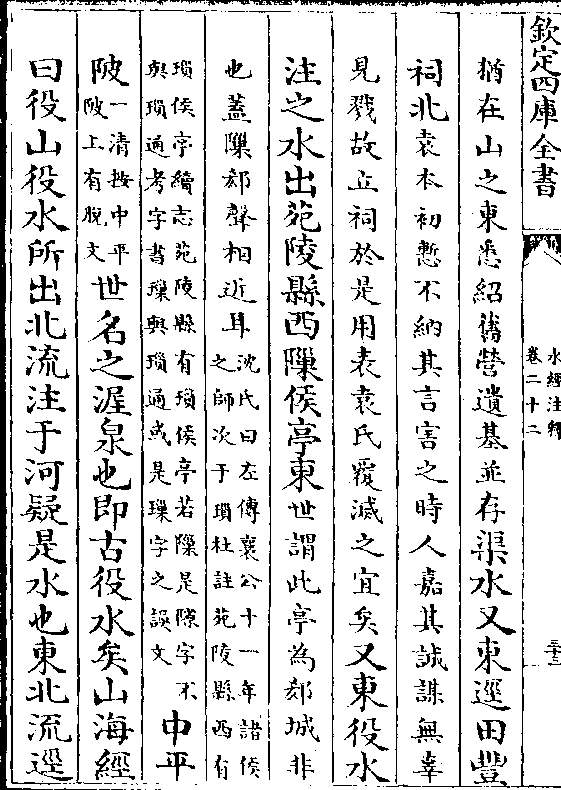 欽定四庫全書
水經注釋
卷二十二
三十三
猶在山之東悉紹舊營遺基並存渠水又東逕田豐
祠北袁本初慙不納其言害之時人嘉其誠謀無辜
見戮故立祠於是用表袁氏覆滅之宜矣又東役水
注之水出苑陵縣西隟侯亭東世謂此亭為郄城非
也蓋隟郄聲相近耳沈氏曰左傳襄公十一年諸侯
之師次于瑣杜註苑陵縣西有
瑣侯亭續志苑陵縣有瑣侯亭若隟是隙字不
與瑣通考字書璅與瑣通或是璅字之誤文中平
陂一清按中平
陂上有脫文世名之渥泉也即古役水矣山海經
曰役山役水所出北流注于河疑是水也東北流逕